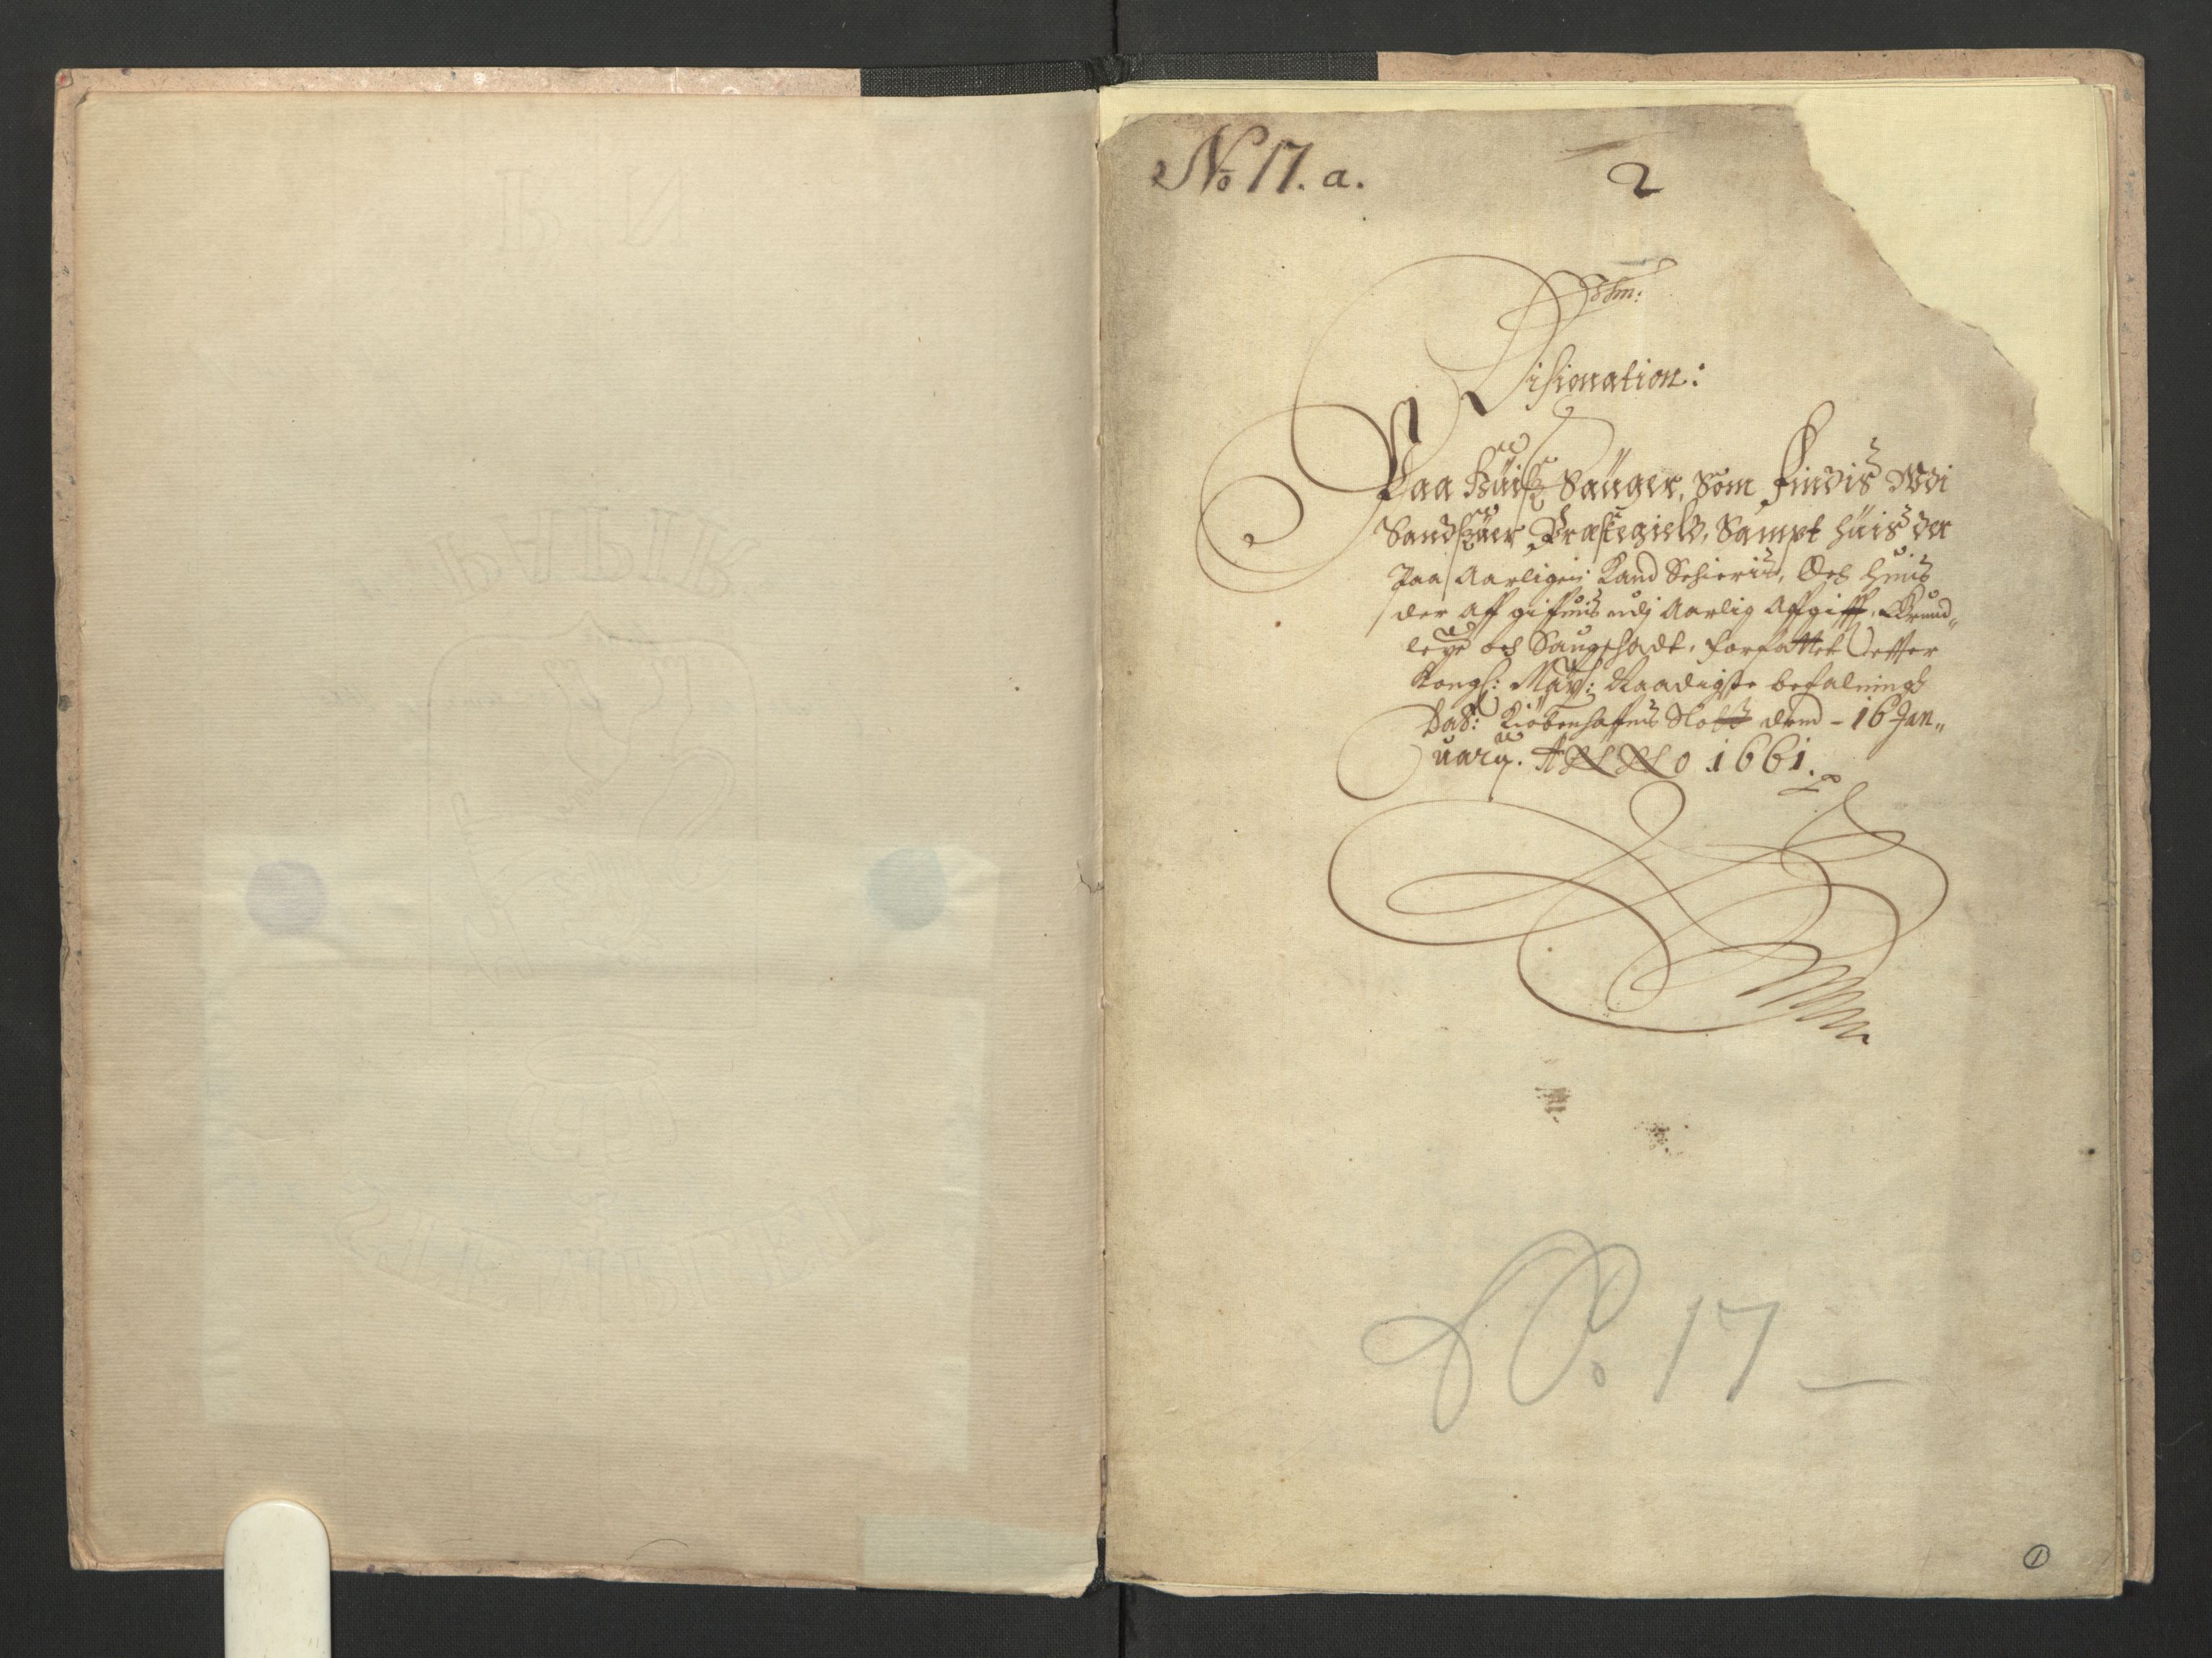 No 17. a.
2
Disignation:
Paa Huis Sauger, Som Findis Vdi
Sandsuer Præstegield, Sampt huis der
Paa Aarligen Kand Schieris, Och huis
der aff giffuis udj Aarlig Affgifft, Grund„
leye och Saugschadt, Forfattet effter
Kongl: May: Naadigste befalning
Dat: Kiöbenhaffns Slott dend - 16 Jan„
uary. ANNO 1661.
No. 17
1